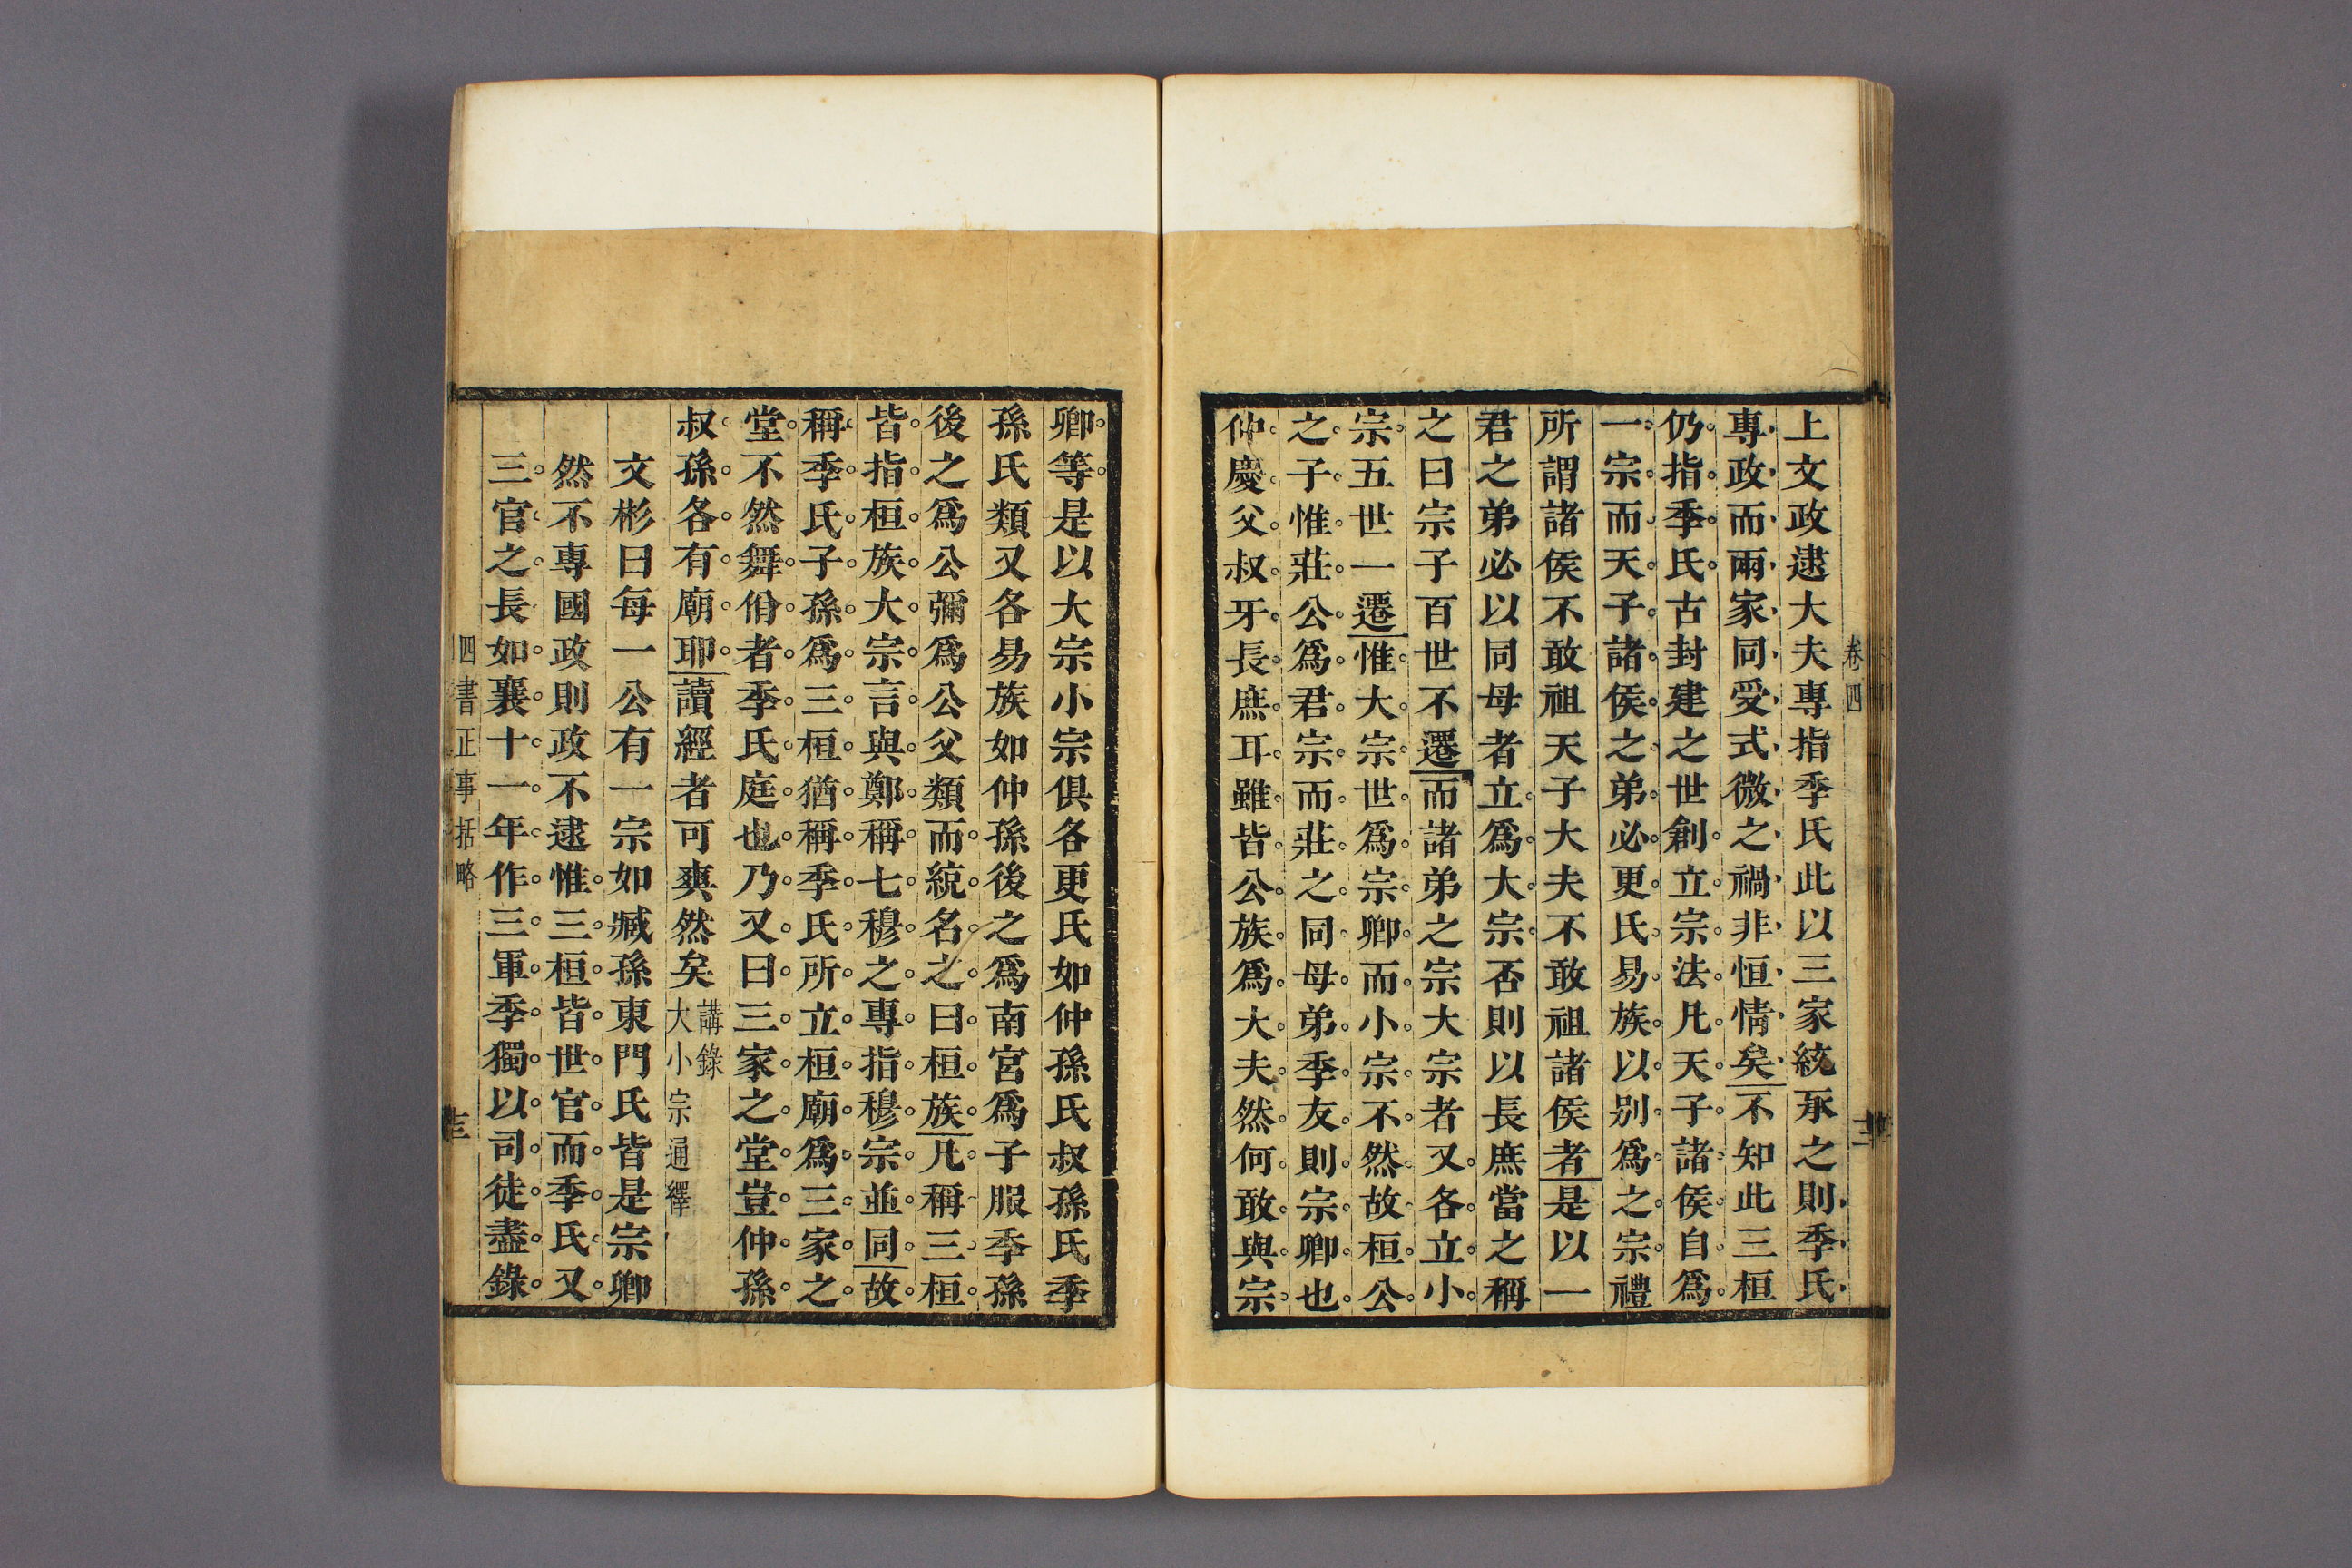 卷四
上文政逮大夫專指季氏此以三家統承之則季氏
專政而兩家同受式微之禍非恒情矣不知此三桓
仍指季氏古封建之世創立宗法凡天子諸侯自爲
一宗而天子諸侯之弟必更氏易族以别爲之宗禮
所謂諸侯不敢祖天子大夫不敢祖諸侯者是以一
君之弟必以同母者立爲大宗否則以長庶當之稱
之曰宗子百世不遷而諸弟之宗大宗者又各立小
宗五世一遷惟大宗世爲宗卿而小宗不然故桓公
之子惟莊公爲君宗而莊之同母弟季友則宗卿也
仲慶父叔牙長庶耳雖皆公族爲大夫然何敢與宗
卿等是以大宗小宗俱各更氏如仲孫氏叔孫氏季
孫氏類又各易族如仲孫後之爲南宮爲子服季孫
後之爲公彌爲公父類而統名之曰桓族凡稱三桓
皆指桓族大宗言與鄭稱七穆之專指穆宗並同故
稱季氏子孫爲三桓猶稱季氏所立桓廟爲三家之
堂不然舞佾者季氏庭也乃又曰三家之堂豈仲孫
叔孫各有廟耶讀經者可爽然矣講錄
大小宗通繹
文彬曰每一公有一宗如臧孫東門氏皆是宗卿
然不專國政則政不逮惟三桓皆世官而季氏又
三官之長如襄十一年作三軍季獨以司徒盡錄
四書正事括略